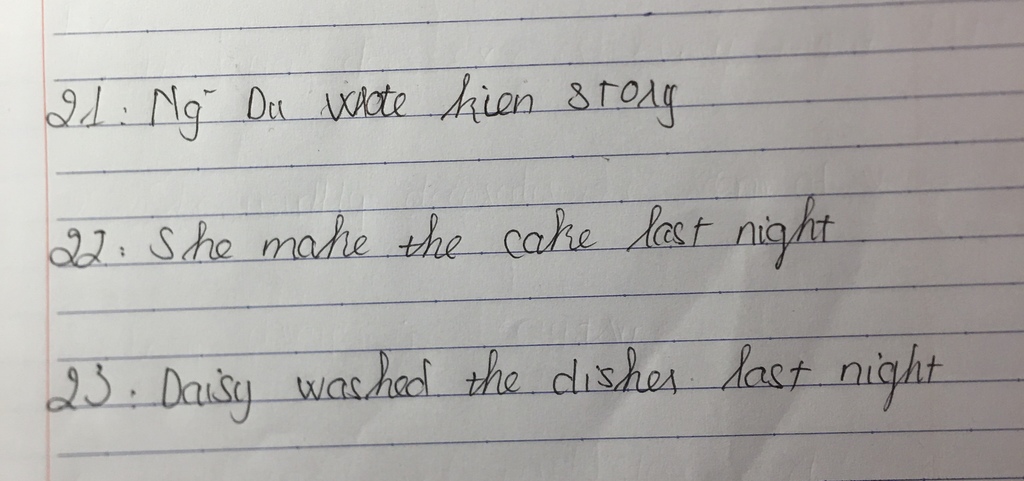 21: Ng~ Du wrote kien story
22: She make the cake last night
23. Daisy washed the dishes last night